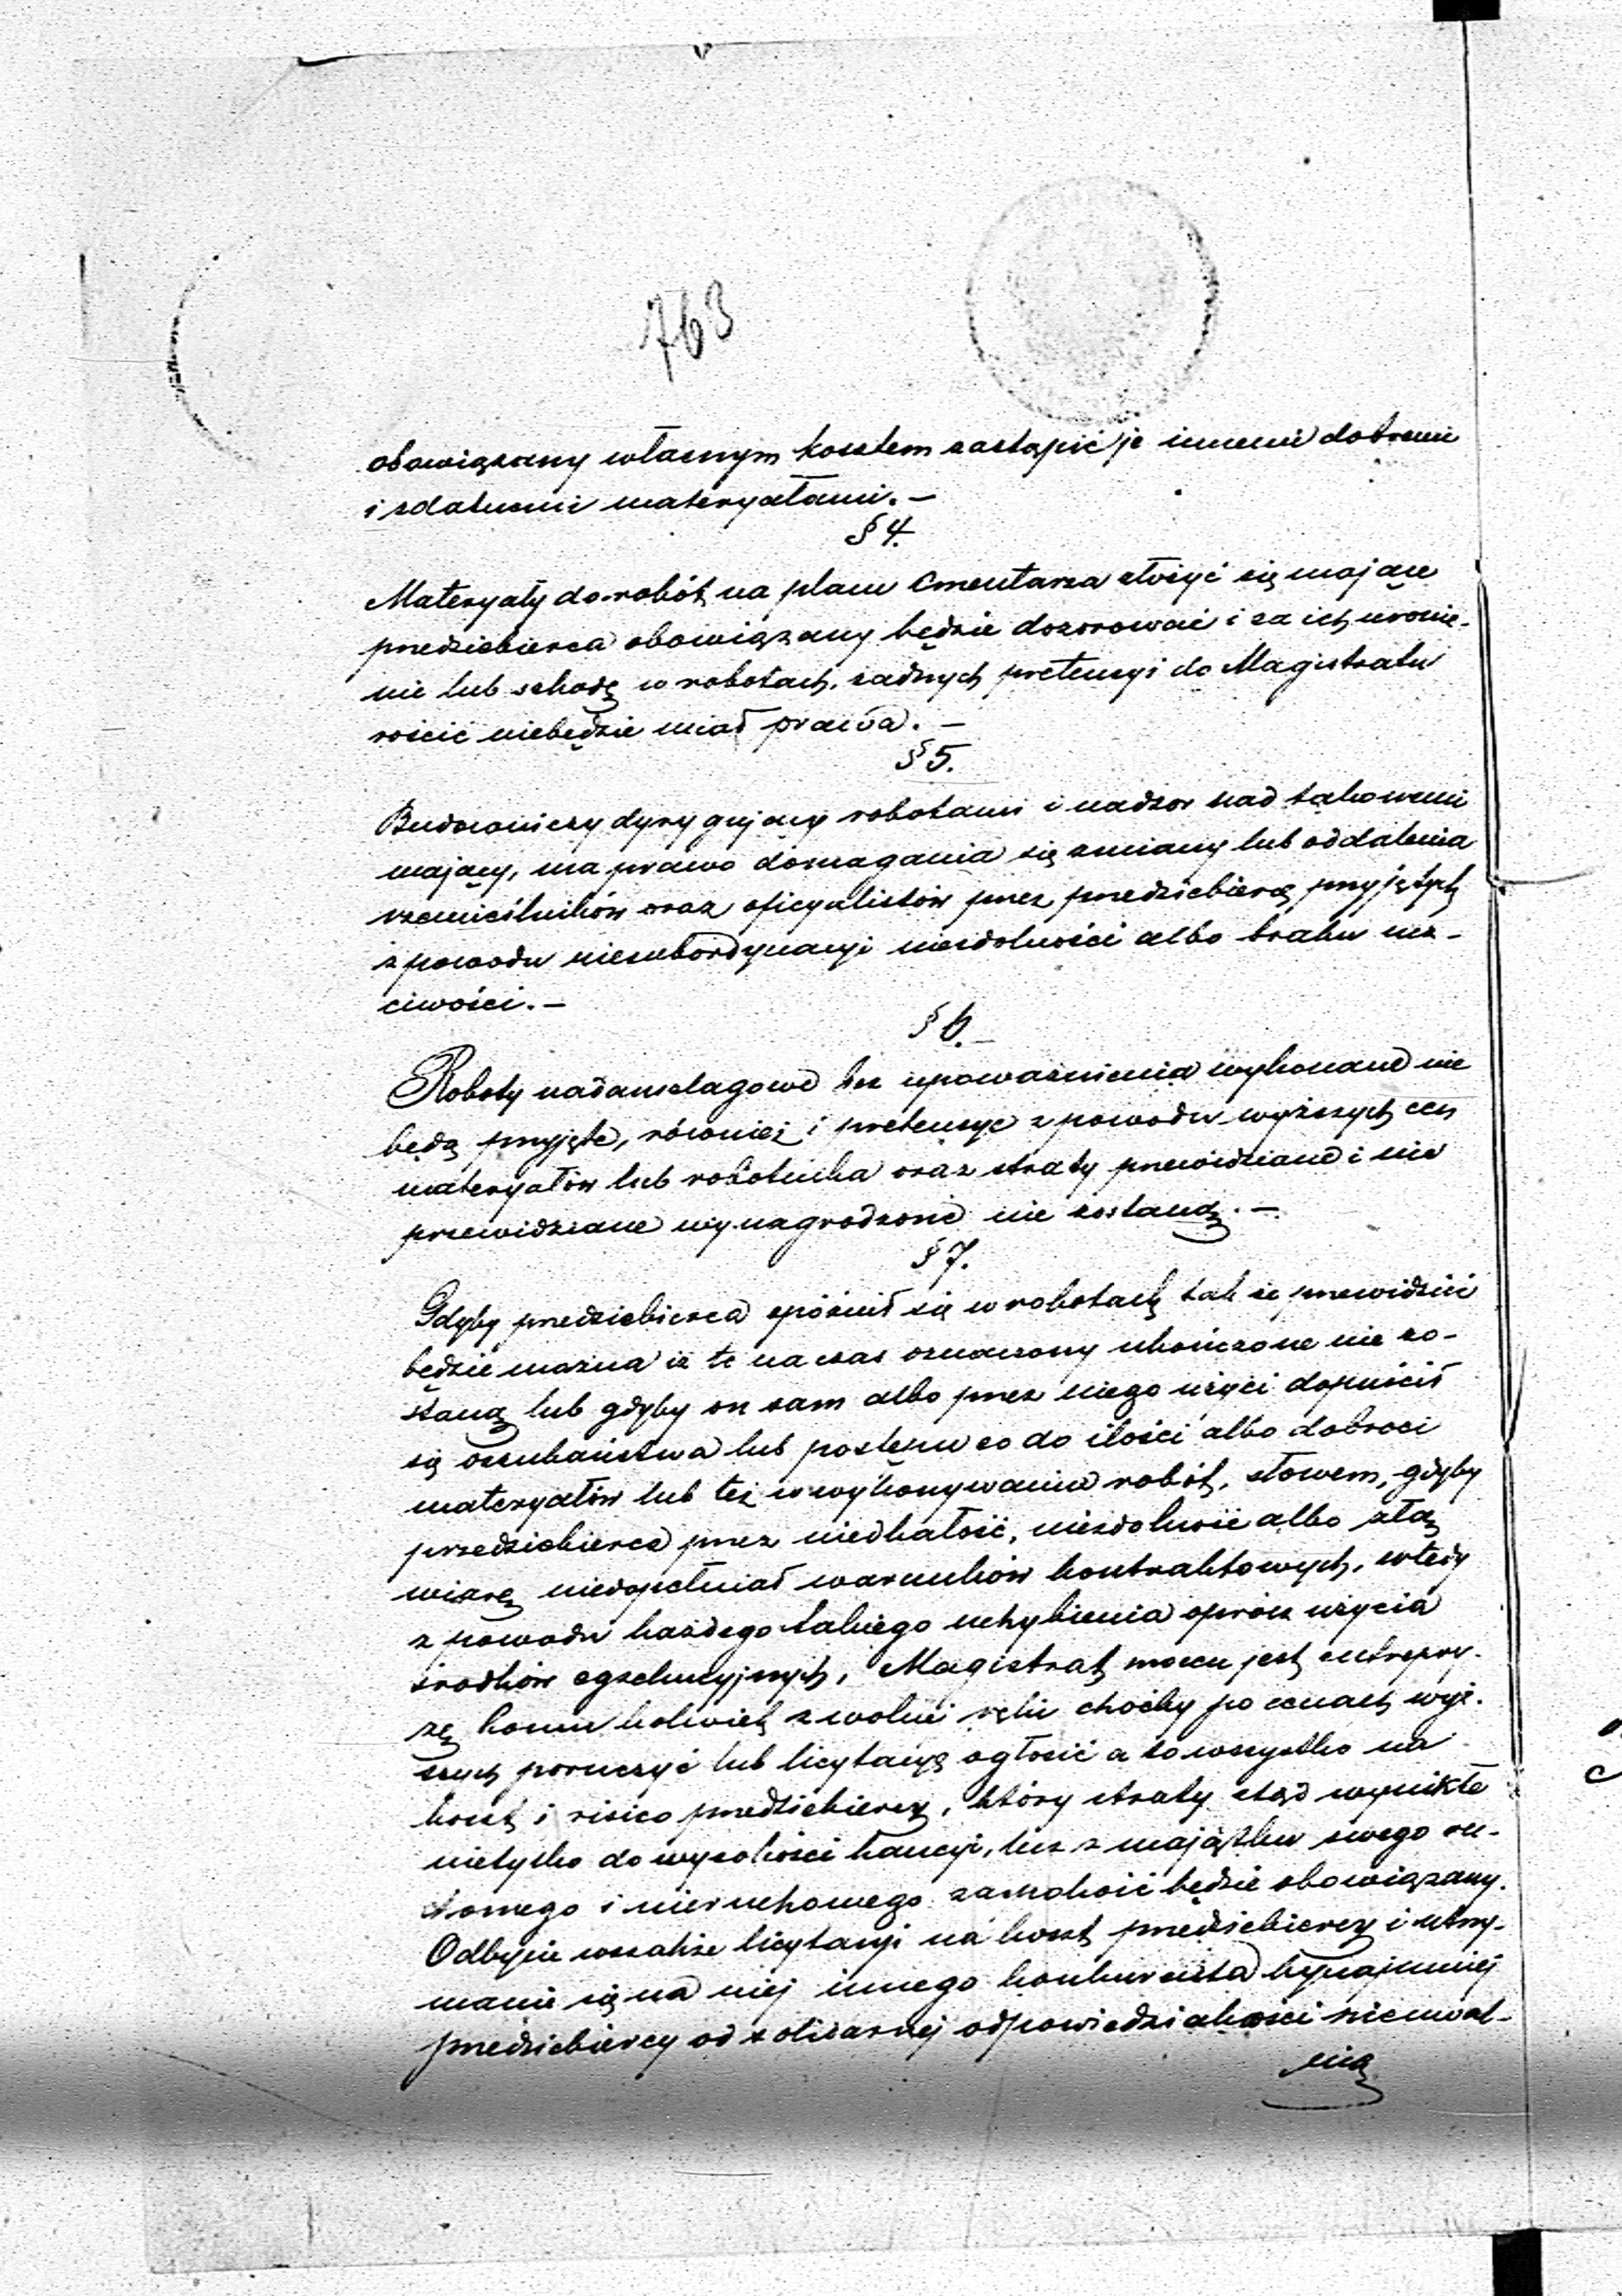 763
obowiązany własnym kosztem zastąpić je innemi dobremi
i zdatnemi materyałami. —
§ 4.
Materyały do robót na placu Cmentarza złożyć się mające
przedsiebierca obowiązany będzie dozorować i za ich uronie-
nie lub szkodę w robotach, żadnych pretensyi do Magistratu
rościć niebędzie miał prawa. —
§ 5.
Budowniczy dyrygujący robotami i nadzor nad takowemi
mający, ma prawo domagania się zmiany lub oddalenia
rzemieślników oraz oficyalistów przez przedsiebiercę przyjętych
z powodu niesubordynacyi niezdolności albo braku ucz-
ciwości. —
§ 6. —
Roboty nadanszlagowe bez upoważnienia wykonane nie
będą przyjęte, również i pretensye z powodu wyższych cen
materyałów lub robotnika oraz straty przewidziane i nie
przewidziane wynagrodzone nie zostaną. —
§ 7.
Gdyby przedsiebierca spóźnił się w robotach tak że przewidzieć
będzie można iż te na czas oznaczony ukończone nie zo-
staną lub gdyby on sam albo przez niego użyci dopuścił
się oszukaństwa lub postępu co do ilości albo dobroci
materyałów lub też w wykonywaniu robót, słowem, gdyby
przedsiebierca przez niedbałość, niezdolność albo złą
wiarę niedopełniał warunków kontraktowych, wtedy
z powodu każdego takiego uchybienia oprócz użycia
środków egzekucyjnych, Magistrat mocen jest entrepry-
zę komu kolwiek z wolnej ręki choćby po cenach wyż-
szych poruczyć lub licytacyą ogłosić a to wszystko na
koszt i risico przedsiebiercy, który straty ztąd wynikłe
nietylko do wysokości kaucyi, lecz z majątku swego ru-
chomego i nieruchomego zaspokoić będzie obowiązany.
Odbycie wszakże licytacyi na koszt przedsiebiercy i utrzy-
manie się na niej innego konkurenta bynajmniej
przedsiebiercy od solidarnej odpowiedzialności nieuwal-
nia